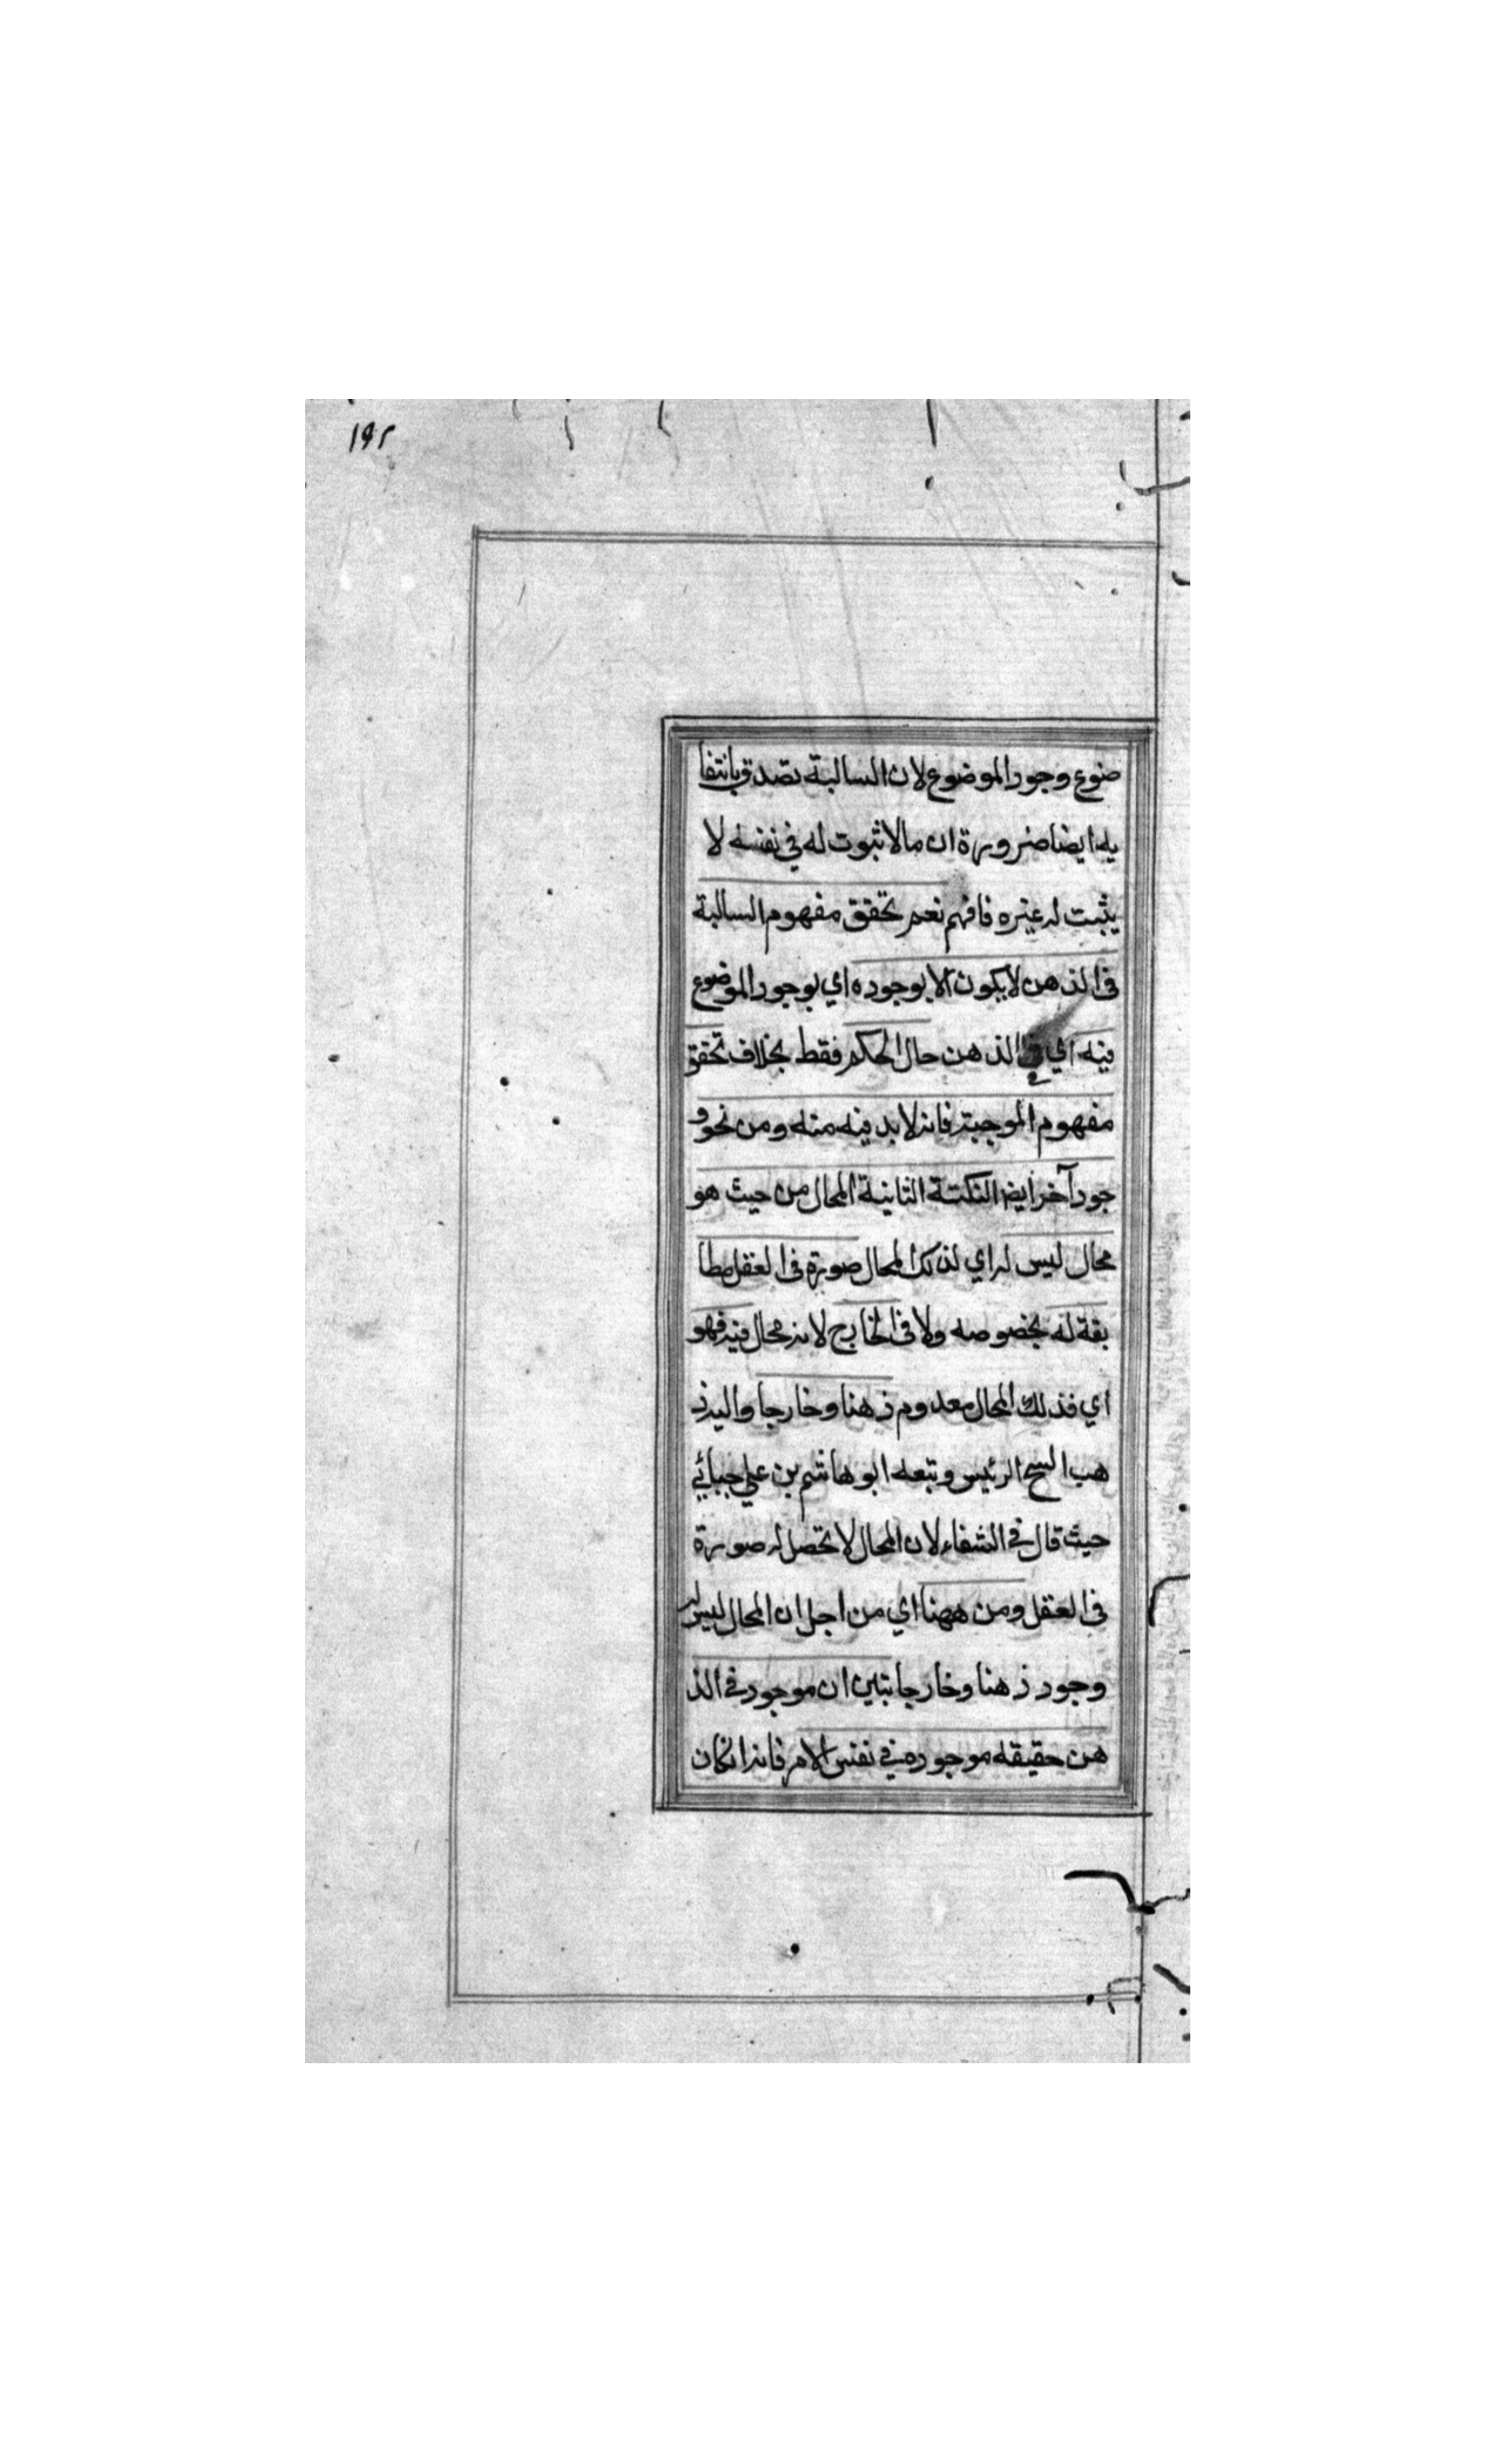 ١٩٢
ضوع وجود الموضوع لان السالبة تصدق بانتفا
يه ايضا ضرورة ان مالا ثبوت له في نفسه لا
يثبت له غيره فافهم نعم تحقق مفهوم السالبة
فى الذهن لا يكون الا بوجوده اي بوجود الموضوع
فيه اي في الذهن حال الحكم فقط بخلاف تحقق
مفهوم الموجبة فانه لا بد فيه منه ومن نحو و
جود آخر ايضا النكتة الثانية المحال من حيث هو
محال ليس له اي لذلك المحال صورة فى العقل مطا
بقة له بخصوصه ولا فى الخارج لانه محال فيه فهو
اي فذلك المحال معدوم ذهنا وخارجا واليه ذ
هب الشيخ الرئيس وتبعه ابو هاشم بن علي جبائي
حيث قال في الشفاء لان المحال لا تحصل له صورة
فى العقل ومن ههنا اي من اجل ان المحال ليس له
وجود ذهنا وخارجا تبين ان موجود في الذ
هن حقيقه موجوده في نفس الامر فانه انكان